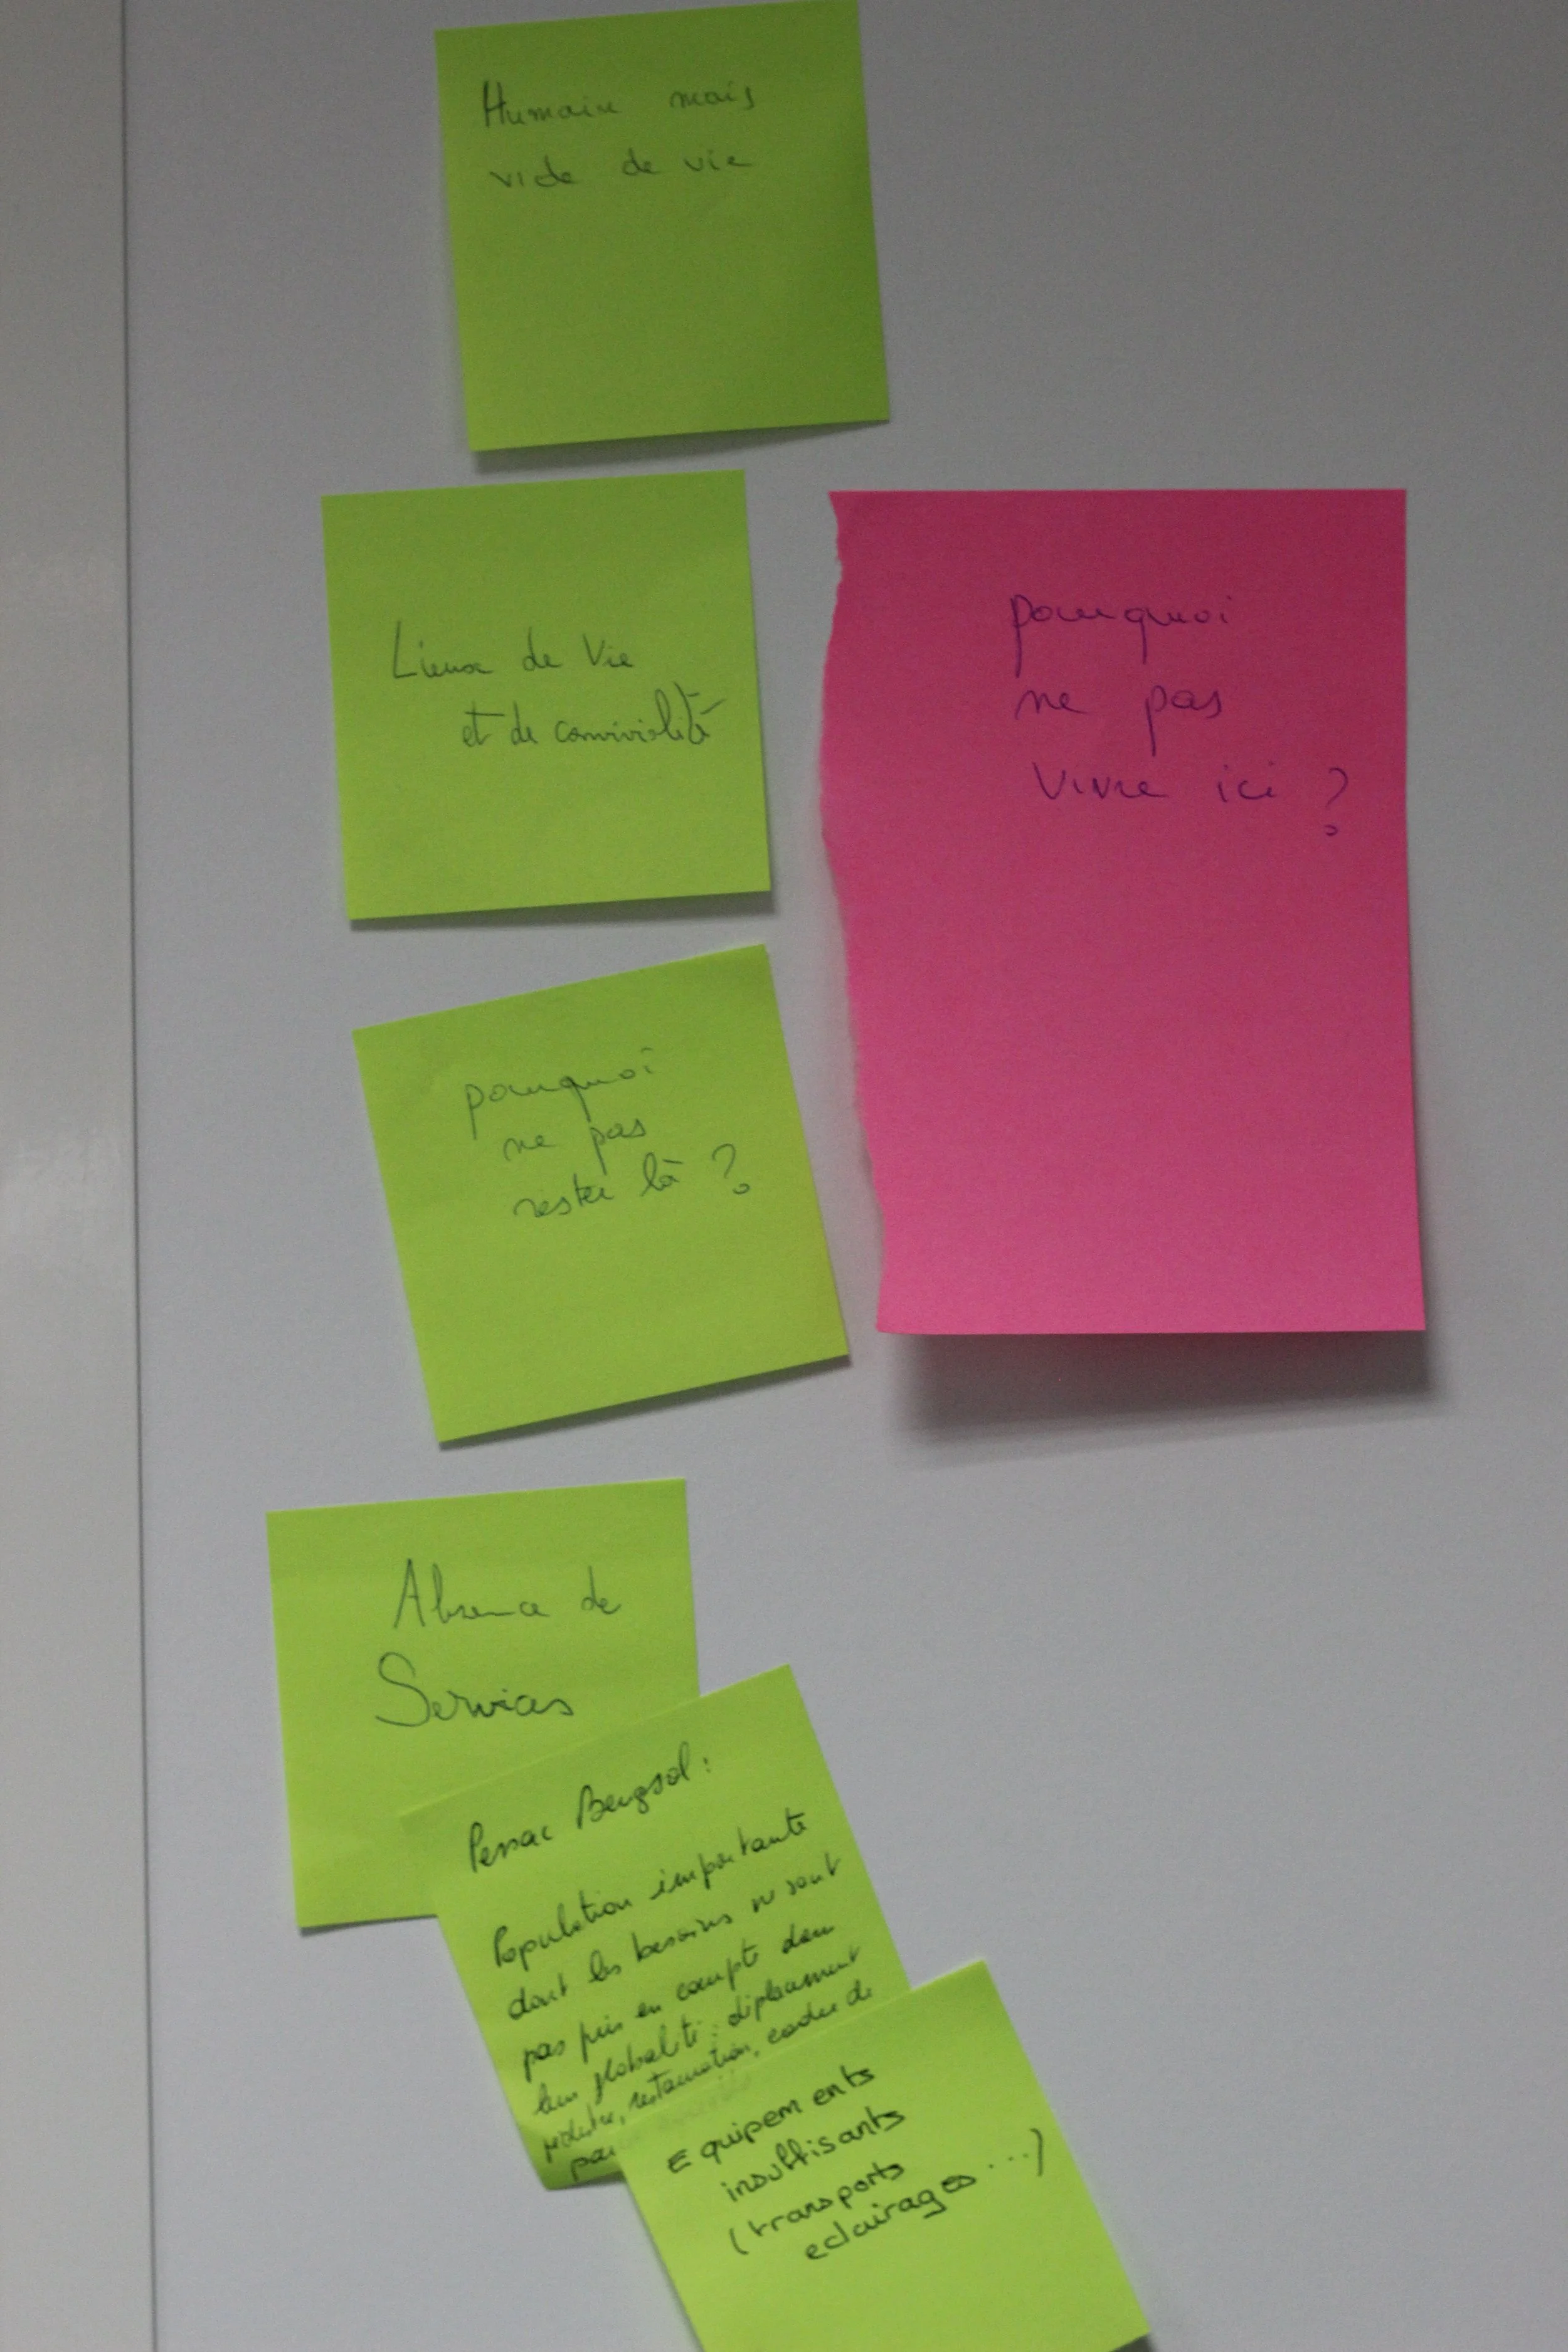 Humain mais
vide de vie
Lieux de Vie
et de convivialité
pourquoi
ne pas
vivre ici ?
pourquoi
ne pas
rester là ?
Absence de
Services
Pessac Bougnol :
Population importante
dont les besoins ne sont
pas pris en compte dans
leur globalité : déplacement
restauration, cadre de
Equipements
insuffisants
(transports
eclairages ...)